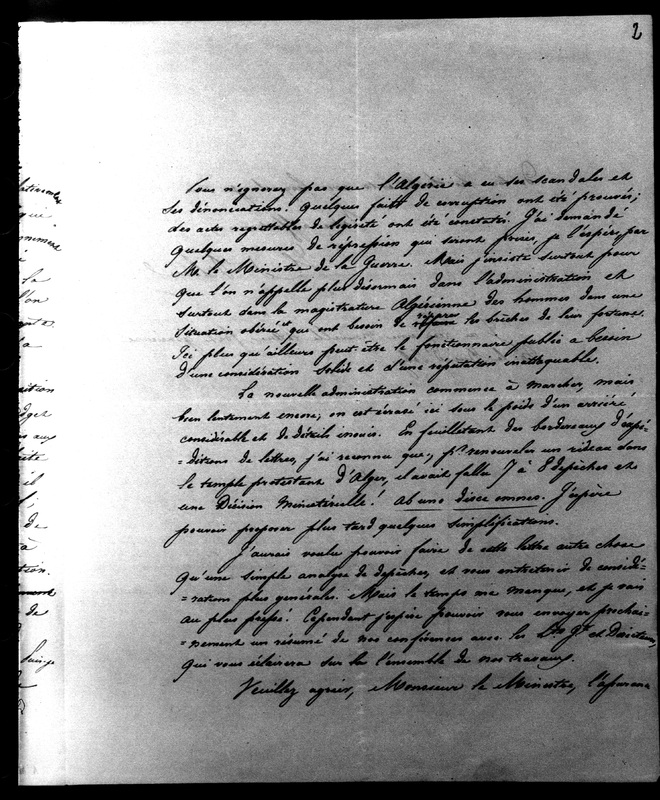 2
Vous n'ignorez pas que l'Algérie a eu ses scandales et
ses dénonciations. Quelques faits de corruption ont été prouvés;
des actes regrettables de légèreté ont été constatés. J'ai demandé
quelques mesures de répression qui seront prises, je l'espère, par
M. le Ministre de la Guerre. Mais j'insiste surtout pour
que l'on n'appelle plus désormais dans l'administration et
surtout dans la magistrature Algérienne des hommes dans une
situation obérée et qui ont besoin de réparer les brèches de leur fortune.
Ici plus qu'ailleurs peut être le fonctionnaire public a besoin
d'une considération solide et d'une réputation inattaquable.
La nouvelle administration commence à marcher, mais
bien lentement encore; on est écrasé ici sous le poids d'un arriéré
considérable et de détails inouis. En feuilletant des bordereaux d'expé-
=ditions de lettres, j'ai reconnu que, pr. renouveler un rideau dans
le temple protestant d'Alger, il avait fallu 7 à 8 dépêches et
une Décision Ministérielle! Ab uno disce omnes. J'espère
pouvoir proposer plus tard quelques simplifications.
J'aurais voulu pouvoir faire de cette lettre autre chose
qu'une simple analyse de dépêches, et vous entretenir de considé-
=rations plus générales. Mais le temps me manque, et je vais
au plus pressé. Cependant j'espère pouvoir vous envoyer prochai-
=nement un résumé de nos conférences avec les
qui vous éclairera sur l'ensemble de nos travaux.
Veuillez agréer, Monsieur le Ministre, l'assurance